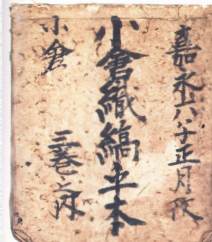 嘉永六 正月改
小倉織縞手本
小倉 三巻之内